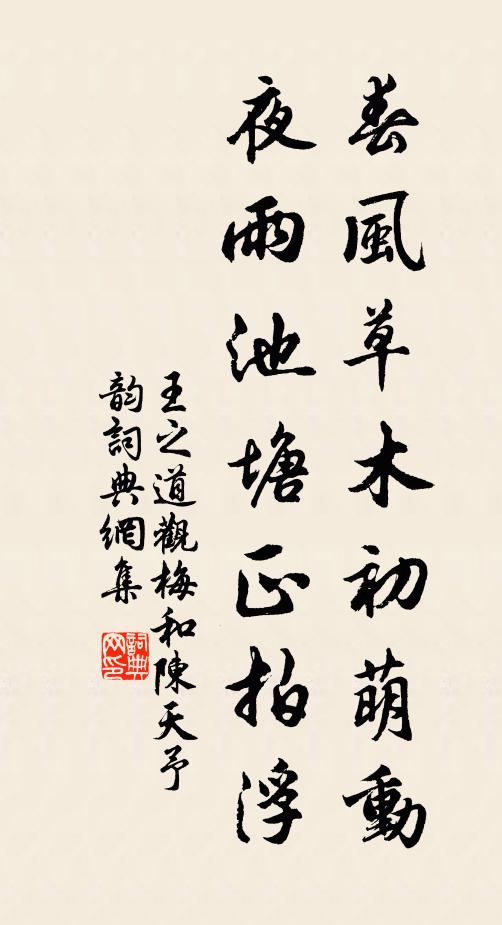 春風草木初萌動
夜雨池塘正拍浮
王之道觀梅和陳天予
韵詞典網集
詞典網印